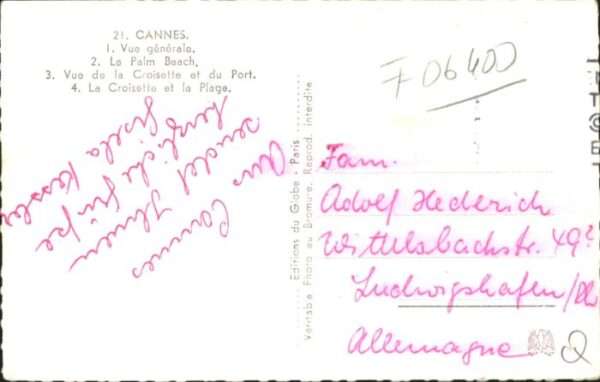 21. CANNES.
1. Vue générale.
2. Le Palm Beach,
3. Vue de la Croisette et du Port.
4. La Croisette et la Plage.
F 06400
Aus
Cannes
sendet Ihnen
herzliche Grüße
Gisela Kessler
Editions du Globe - Paris
Véritable Photo au Bromure. Reprod. interdite
Fam.
Adolf Hederich
Wittelsbachstr. 49
Ludwigshafen/Rh
Allemagne